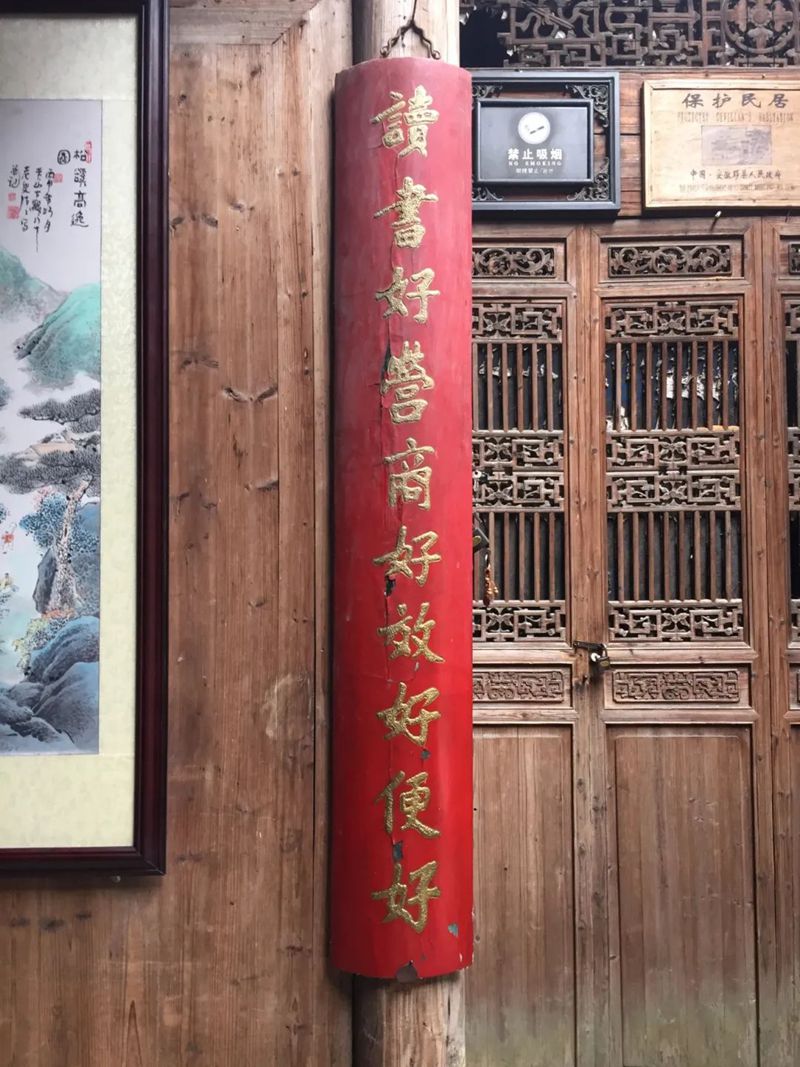 讀書好營商好效好便好
松讀高逸
圖
禁止吸烟
NO SMOKING
保护民居
中国·安徽黟县人民政府